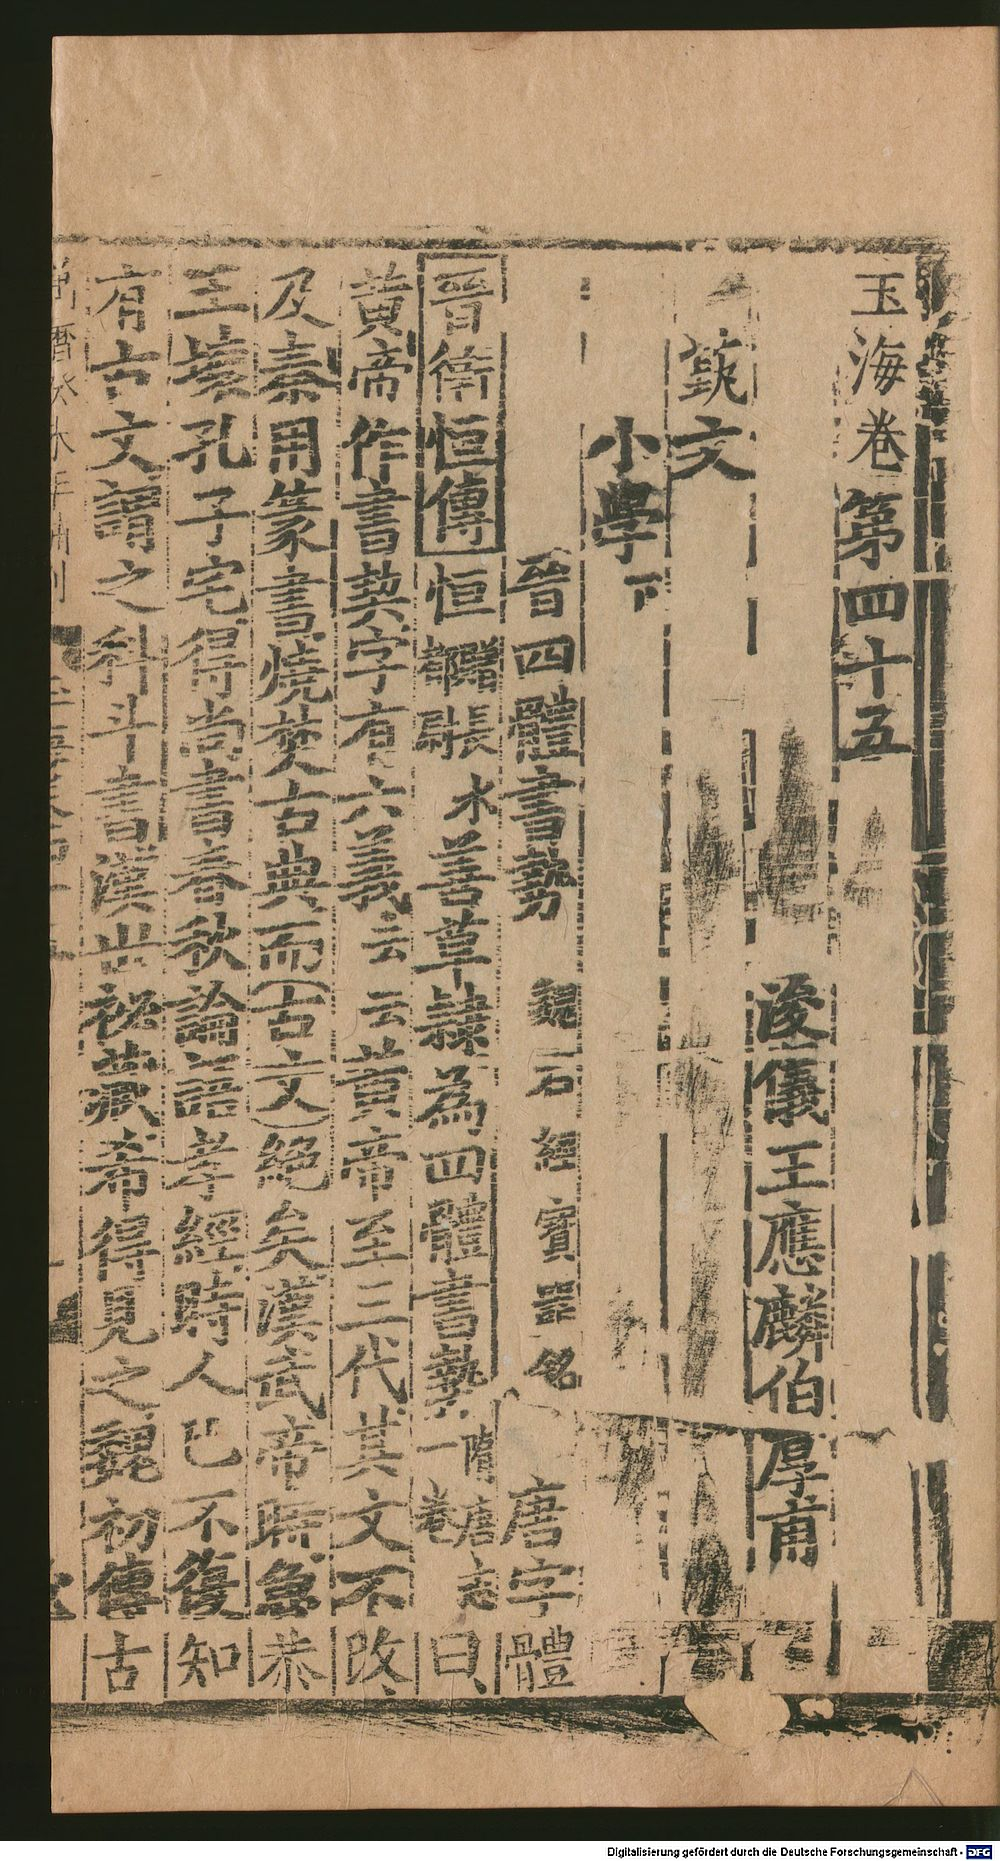 玉海卷第四十五
浚儀王應麟伯厚甫
藝文
小學下
晉四體書勢 魏石經 寶器銘 唐字體
晉衛恒傳恒 善草隷為四體書勢 隋唐志一卷 曰
黄帝作書契字有六義云云黄帝至三代其文不改
及秦用篆書燒焚古典而(古文)絶矣漢武帝時魯恭
王壞孔子宅得尚書春秋論語孝經時人已不復知
有古文謂之科斗書漢世祕藏希得見之魏初傳古
Digitalisierung gefördert durch die Deutsche Forschungsgemeinschaft - DFG